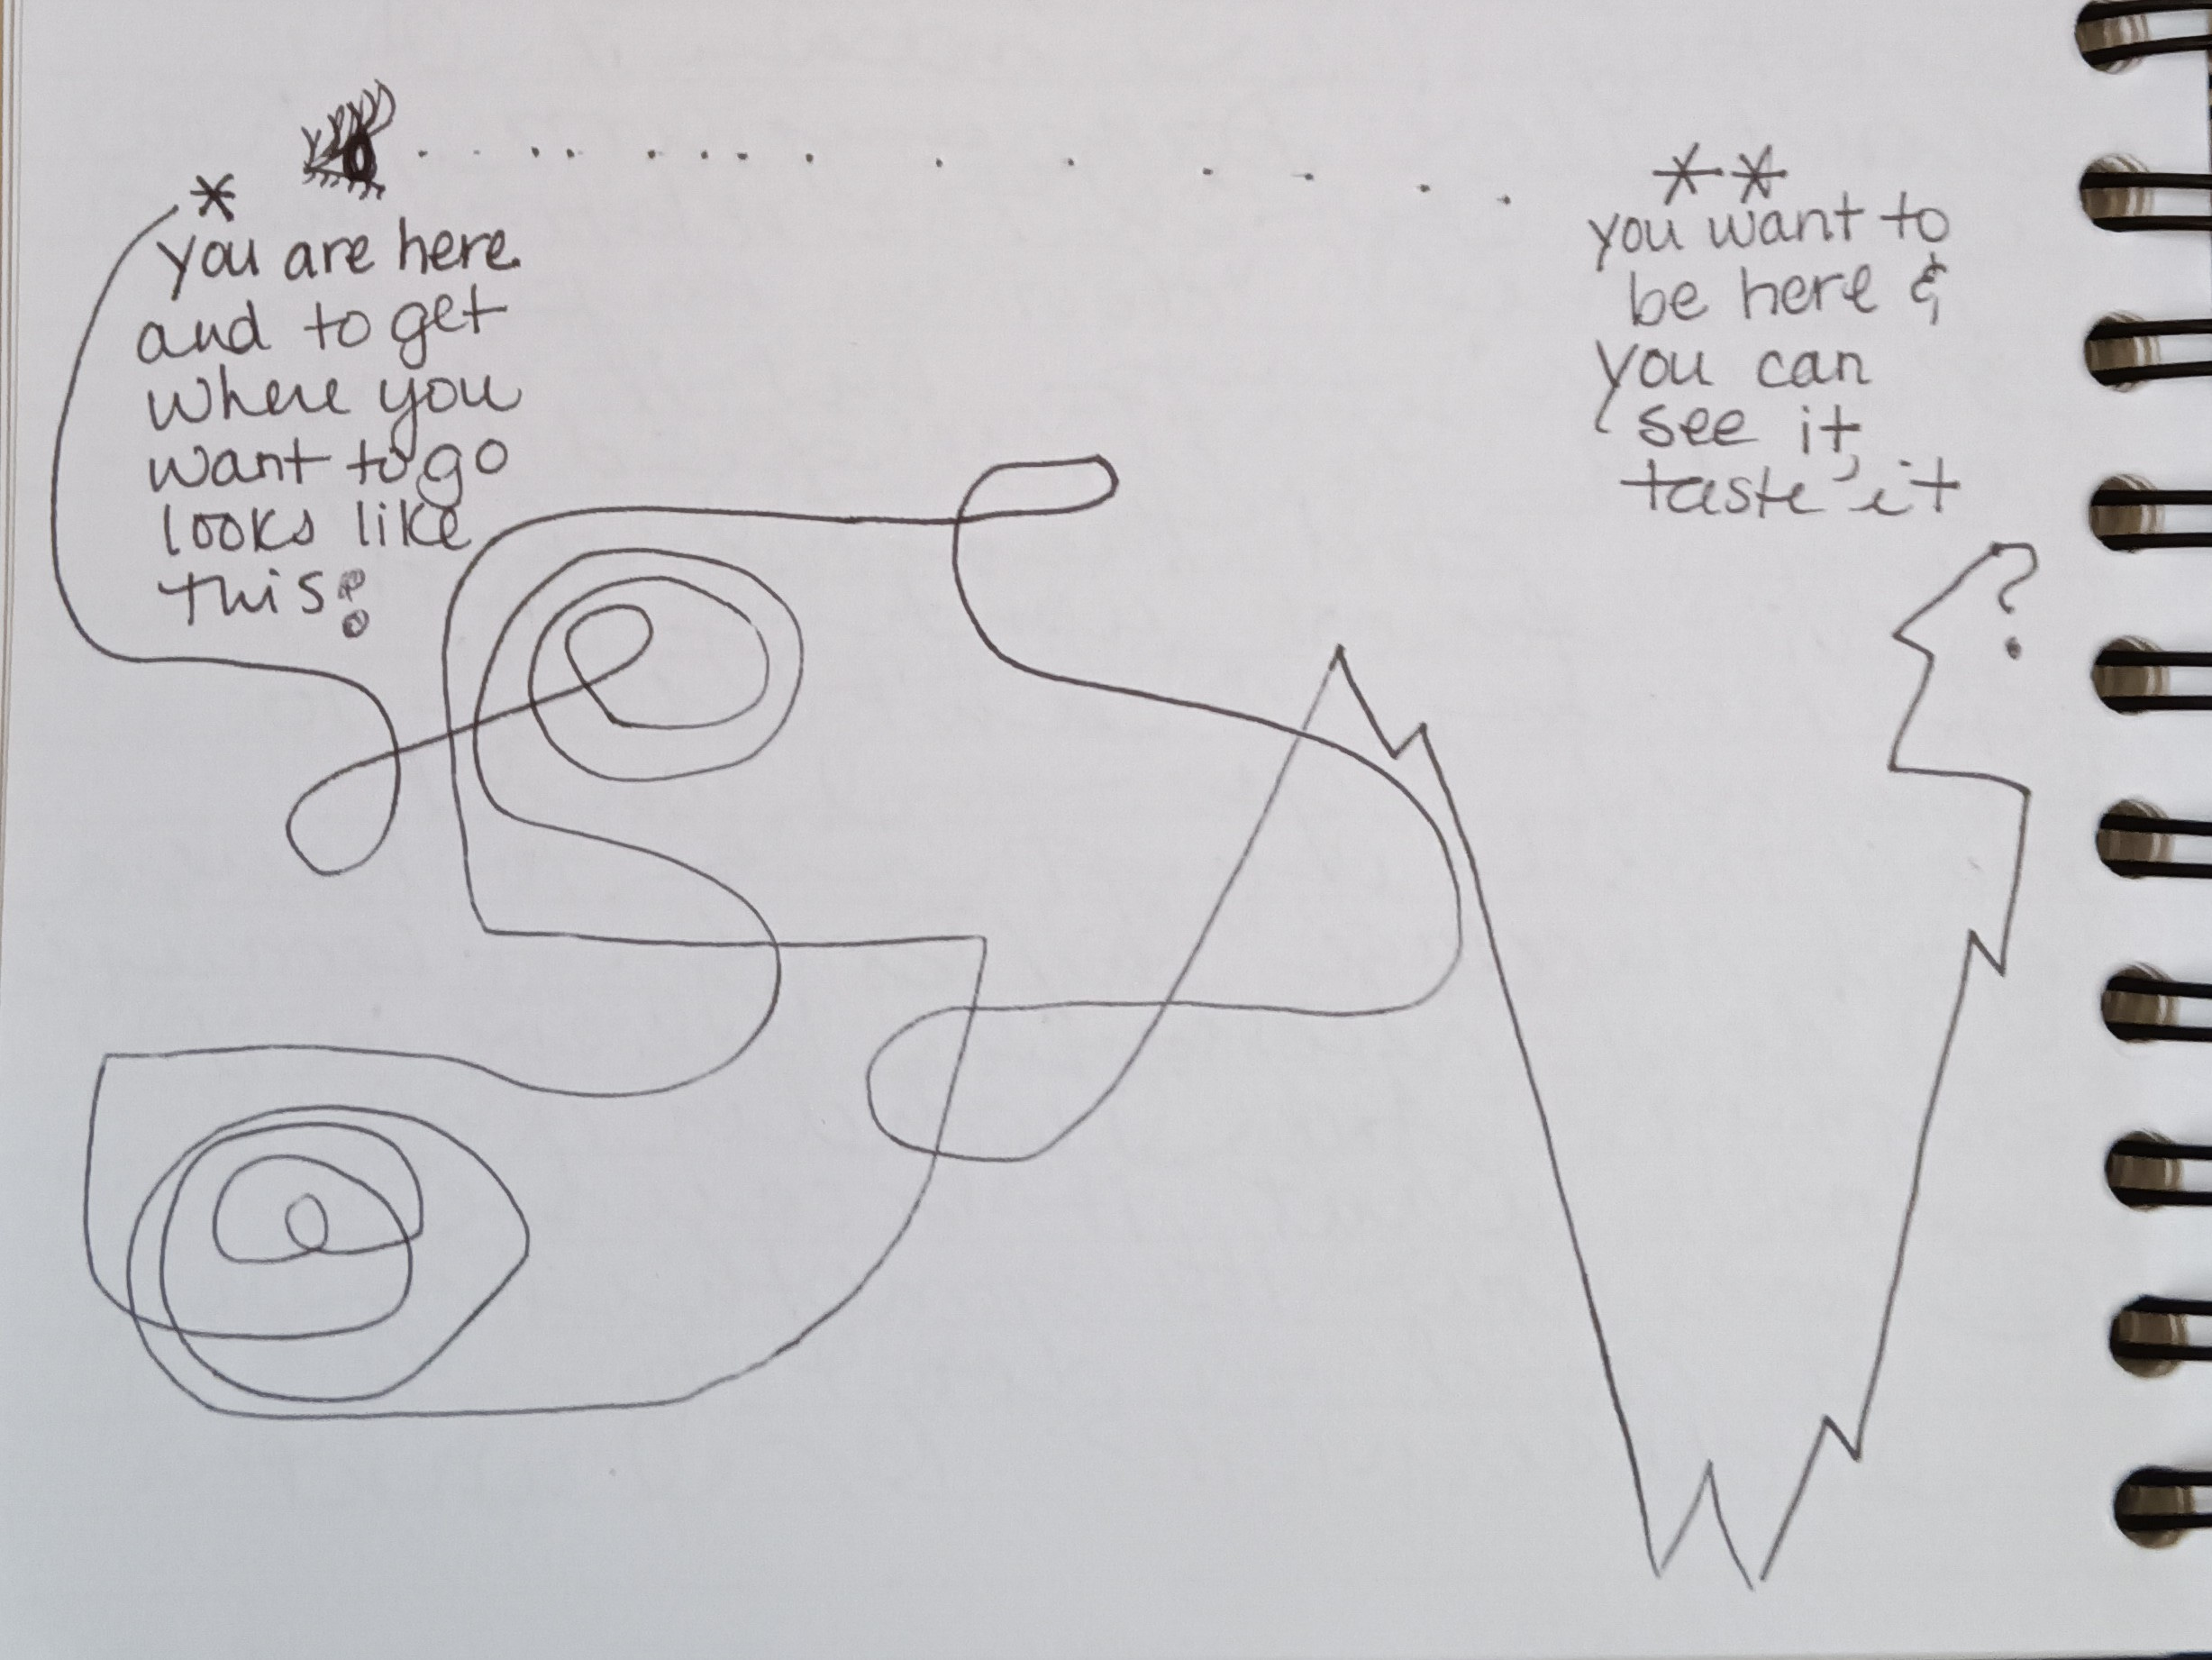 *
you are here
and to get
where you
want to go
looks like
this:
**
you want to
be here &
you can
see it,
taste it
?